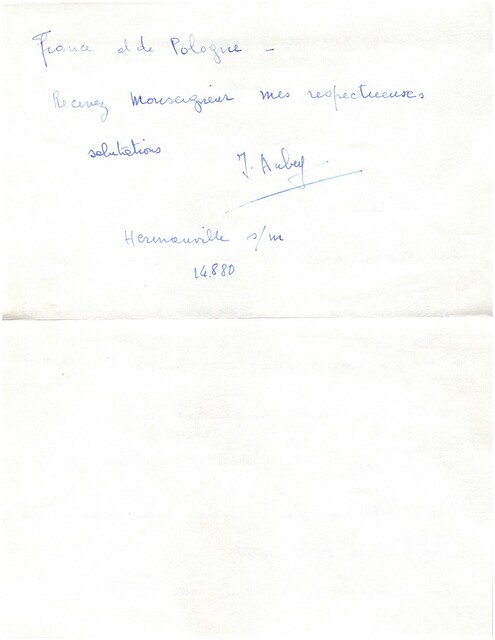 France et de Pologne -
Recevez Monseigneur mes respectueuses
salutations
J. Aubey
Hermanville s/m
14.880